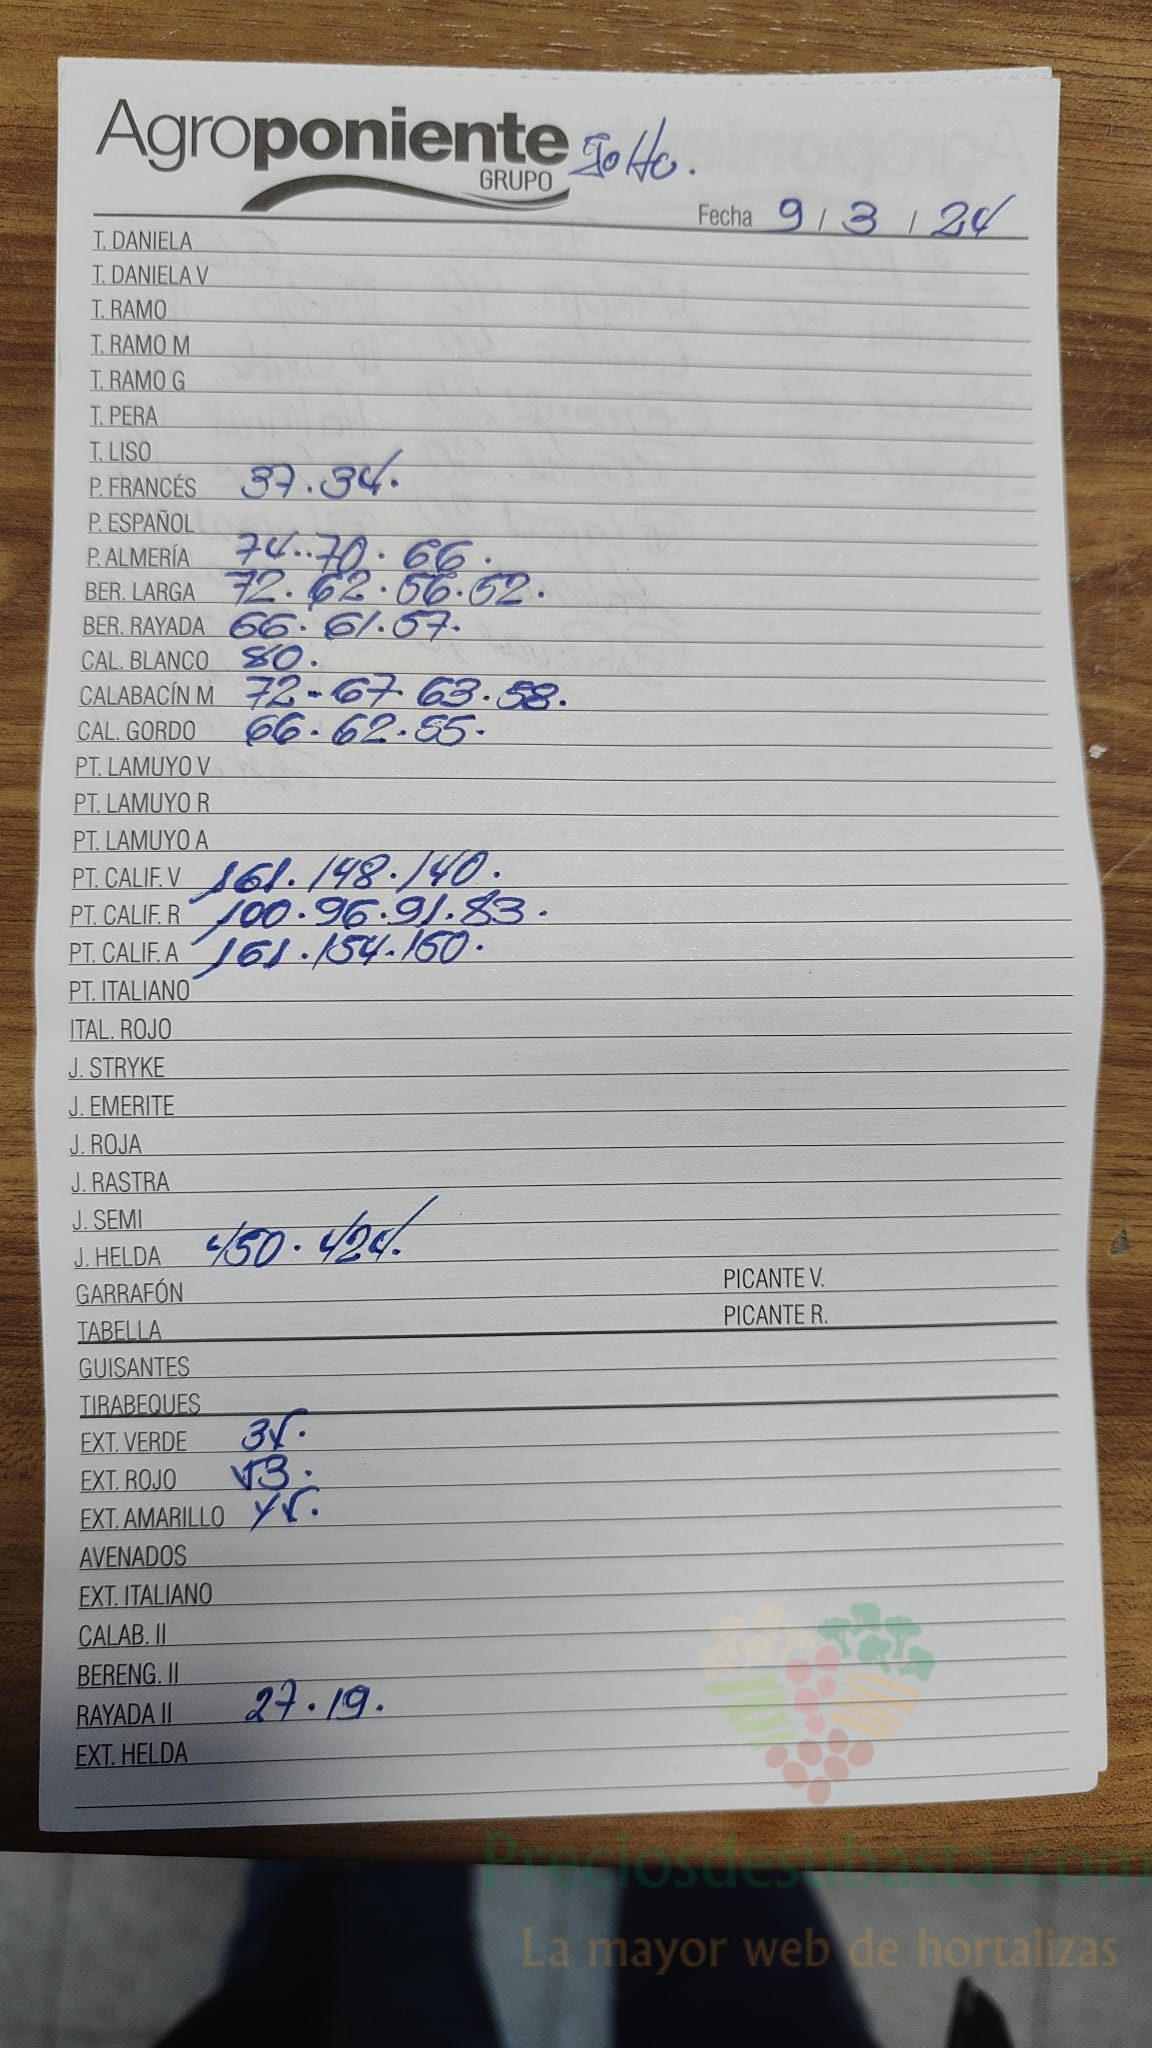 Agroponiente
GRUPO
Fecha 9 / 3 / 24
T. DANIELA
T. DANIELA V
T. RAMO
T. RAMO M
T. RAMO G
T. PERA
T. LISO
P. FRANCÉS 37.34.
P. ESPAÑOL
P. ALMERÍA 74..70.66.
BER. LARGA 72.62.56.52.
BER. RAYADA 66.61.57.
CAL. BLANCO 80.
CALABACÍN M 72-67.63.58.
CAL. GORDO 66.62.55.
PT. LAMUYO V
PT. LAMUYO R
PT. LAMUYO A
PT. CALIF. V 161.148.140.
PT. CALIF. R 100.96.91.83.
PT. CALIF. A 161.154.150.
PT. ITALIANO
ITAL. ROJO
J. STRYKE
J. EMERITE
J. ROJA
J. RASTRA
J. SEMI
J. HELDA 450.424.
GARRAFÓN PICANTE V.
TABELLA PICANTE R.
GUISANTES
TIRABEQUES
EXT. VERDE
EXT. ROJO
EXT. AMARILLO
AVENADOS
EXT. ITALIANO
CALAB. II
BERENG. II
RAYADA II 27.19.
EXT. HELDA
Preciosdesubasta.com
La mayor web de hortalizas